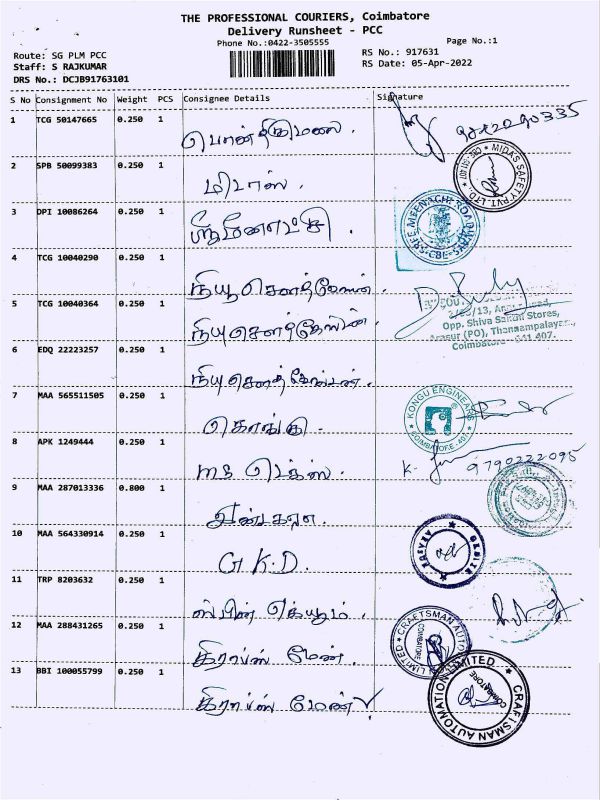 THE PROFESSIONAL COURIERS, Coimbatore
Delivery Runsheet - PCC
Phone No.:0422-3505555
Page No.:1
Route: SG PLM PCC
Staff: S RAJKUMAR
DRS No.: DCJB91763101
RS No.: 917631
RS Date: 05-Apr-2022
S No Consignment No Weight PCS Consignee Details Signature
1 TCG 50147665 0.250 1 பொன்திருமலை.
2 SPB 50099383 0.250 1 மிடாஸ். MIDAS SAFETY PVT. LTD.
3 DPI 10086264 0.250 1 ஸ்ரீமீனாட்சி.
4 TCG 10040290 0.250 1 நியூ
5 TCG 10040364 0.250 1 நியூ
Opp. Shiva Sakthi Stores,
Arasur (PO), Thennampalayam,
Coimbatore - 641 407.
6 EDQ 22223257 0.250 1 நியூ
7 MAA 565511505 0.250 1 கொங்கு. KONGU ENGINEERS COIMBATORE
8 APK 1249444 0.250 1 ms டெக்ஸ். 9790222095
9 MAA 287013336 0.800 1
10 MAA 564330914 0.250 1 G.K.D.
11 TRP 8203632 0.250 1
12 MAA 288431265 0.250 1 கிராப்ஸ் மேன். CRAFTSMAN AUTOMATION LIMITED COIMBATORE
13 BBI 100055799 0.250 1 கிராப்ஸ் மேன் CRAFTSMAN AUTOMATION LIMITED COIMBATORE